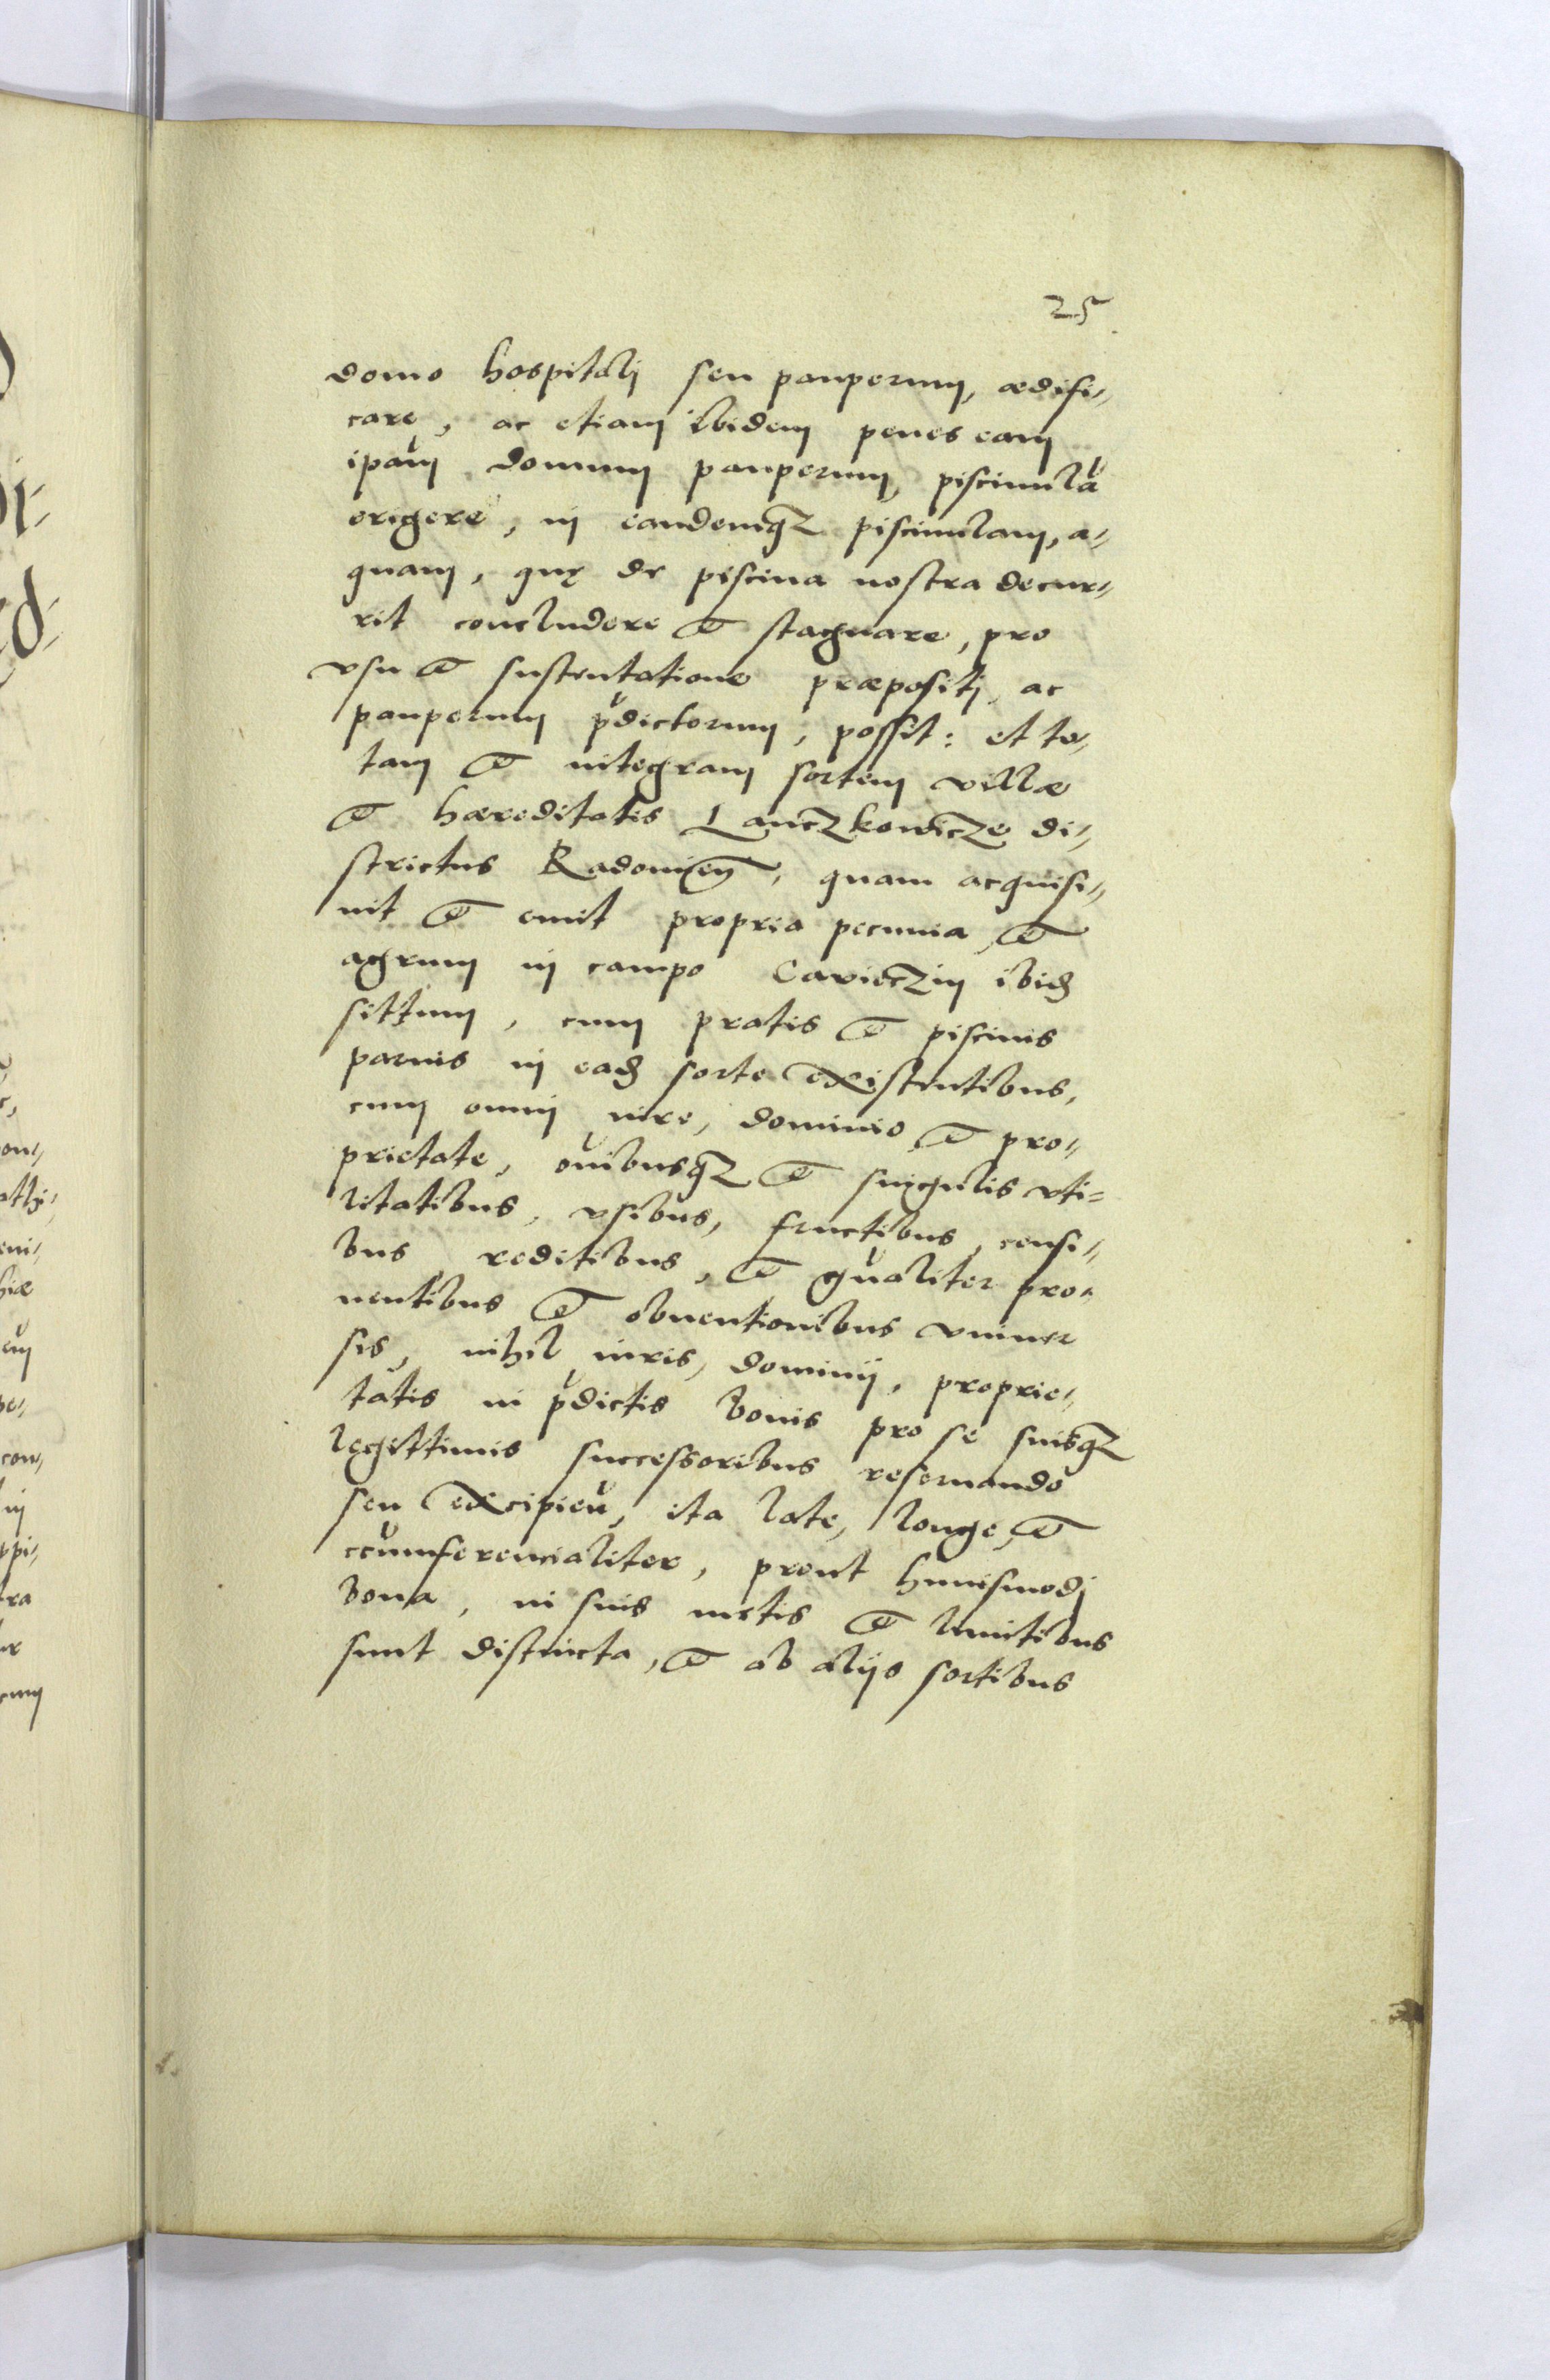 25
domo hospitalj seu pauperum, ædifi-
care, ac etiam ibidem penes eam
ipam̃ domum pauperum, piscinulã
erigere, in eandemqȝ piscinulam, a-
quam, quę de piscina nostra decur-
rit concludere et stagnare, pro
vsu et sustentatione præpositj ac
pauperum p̃dictorum, possit: et to-
tam et integram sortem villæ
et hæreditatis Lanczkowicze di-
strictus Radomien̄, quam acquisi-
uit et emit propria pecunia et
agrum in campo Cavieczin ibid̄
sittum, cum pratis et piscinis
paruis in ead̄ sorte existentibus,
cum omni iure, dominio et pro-
prietate, om̃ibusqȝ et singulis vti-
litatibus, vsibus, fructibus, censi-
bus reditibus, et qualiter pro-
uentibus et obuentionibus vniuer
sis, nihil iuris, dominij, proprie-
tatis in p̃dictis bonis pro se suisqȝ
legittimis successoribus reseruando
seu excipieñ, ita late, longe, et
ccũmferencialiter, prout huiusmodj
bona, in suis metis et limitibus
sunt distincta, et ab alijs sortibus